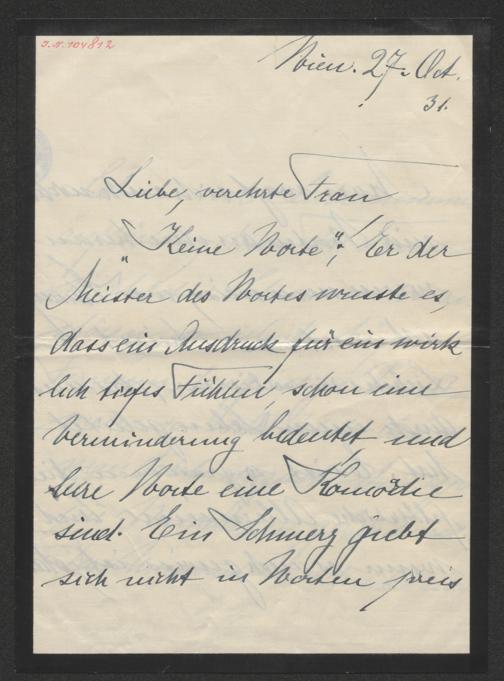 I.N. 104812
Wien. 27. Oct.
31.
Liebe, verehrte Frau
"Keine Worte"! Er der
Meister des Wortes wusste es,
dass ein Ausdruck für ein wirk
lich tiefes Fühlen, schon eine
Verminderung bedeutet und
leere Worte eine Komödie
sind. Ein Schmerz giebt
sich nicht in Worten preis